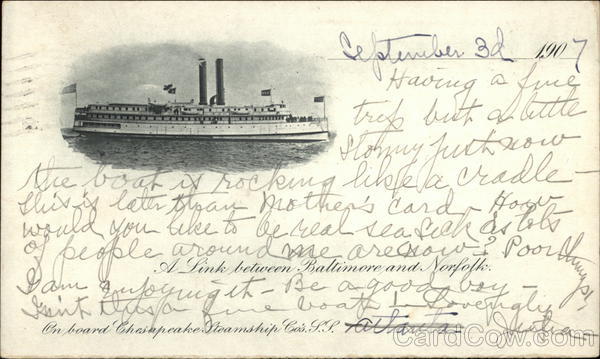 September 3d 1907
Having a fine
trip but a little
stormy just now
the boat is rocking like a cradle -
This is later than Mother's card - How
would you like to be real sea sick as lots
of people around me are now? Poor things!
A Link between Baltimore and Norfolk.
I am enjoying it - Be a good boy -
Isn't this a fine boat! - Lovingly
On board Chesapeake Steamship Co's. S.S. Atlanta
CardCow.com